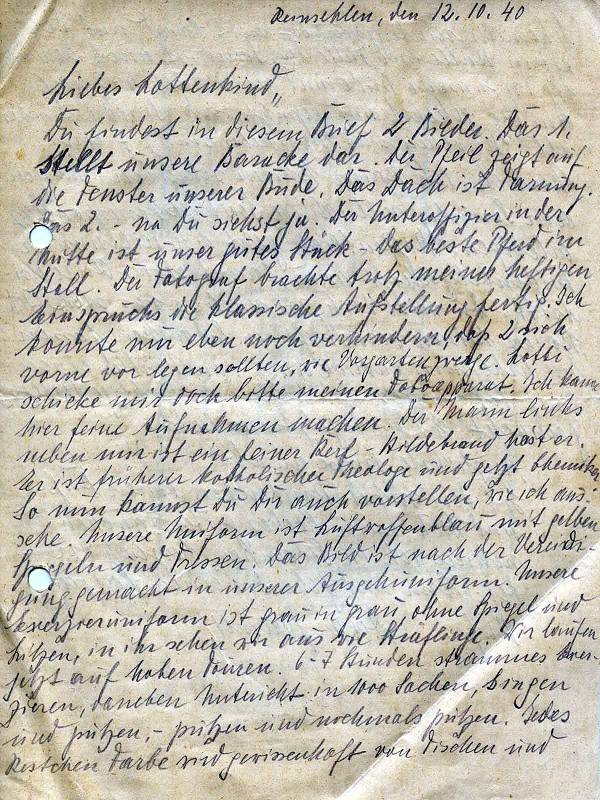 Reinsehlen, den 12.10.40
Liebes Lottenkind,,
Du findest in diesem Brief 2 Bilder. Das 1.
stellt unsere Baracke dar. Der Pfeil zeigt auf
die Fenster unserer Bude. Das Dach ist Tarnung.
Das 2. - na Du siehst ja. Der Unteroffizier in der
Mitte ist unser gutes Stück - das beste Pferd im
Stall. Der Fotograf brachte trotz meines heftigen
Einspruchs die klassische Aufstellung fertig. Ich
konnte nur eben noch verhindern, daß 2 sich
vorne vor legen sollten, wie Vorgartenzwerge. Lotti
schicke mir doch bitte meinen Fotoapparat. Ich kann
hier feine Aufnahmen machen. Der Mann links
neben mir ist ein feiner Kerl - Hildebrand heißt er.
Er ist früherer katholischer Theologe und jetzt Chemiker.
So nun kannst Du Dir auch vorstellen, wie ich aus-
sehe. Unsere Uniform ist Luftwaffenblau mit gelben
Spiegeln und Tressen. Das Bild ist nach der Vereidi-
gung gemacht in unserer Ausgehuniform. Unsere
Exerzieruniform ist grau in grau, ohne Spiegel und
Litzen, in ihr sehen wir aus wie Sträflinge. Wir laufen
jetzt auf hohen Touren. 6-7 Stunden strammes Exer-
zieren, daneben Unterricht in 1000 Sachen, Singen
und putzen, - putzen und nochmals putzen. Jedes
Restchen Farbe wird gewissenhaft von Tischen und